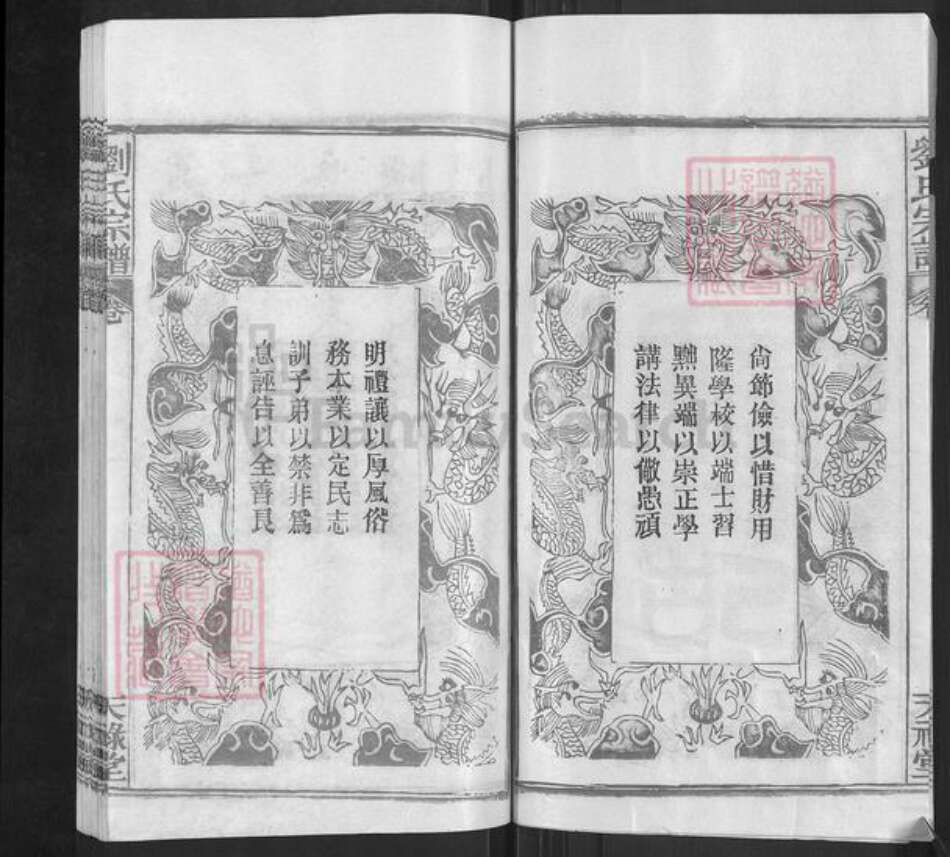 尙節儉以惜財用
隆學校以端士習
黜異端以崇正學
講法律以儆愚頑
明禮讓以厚風俗
務本業以定民志
訓子弟以禁非爲
息誣告以全善良
劉氏宗譜
卷
天祿堂
FamilySearch